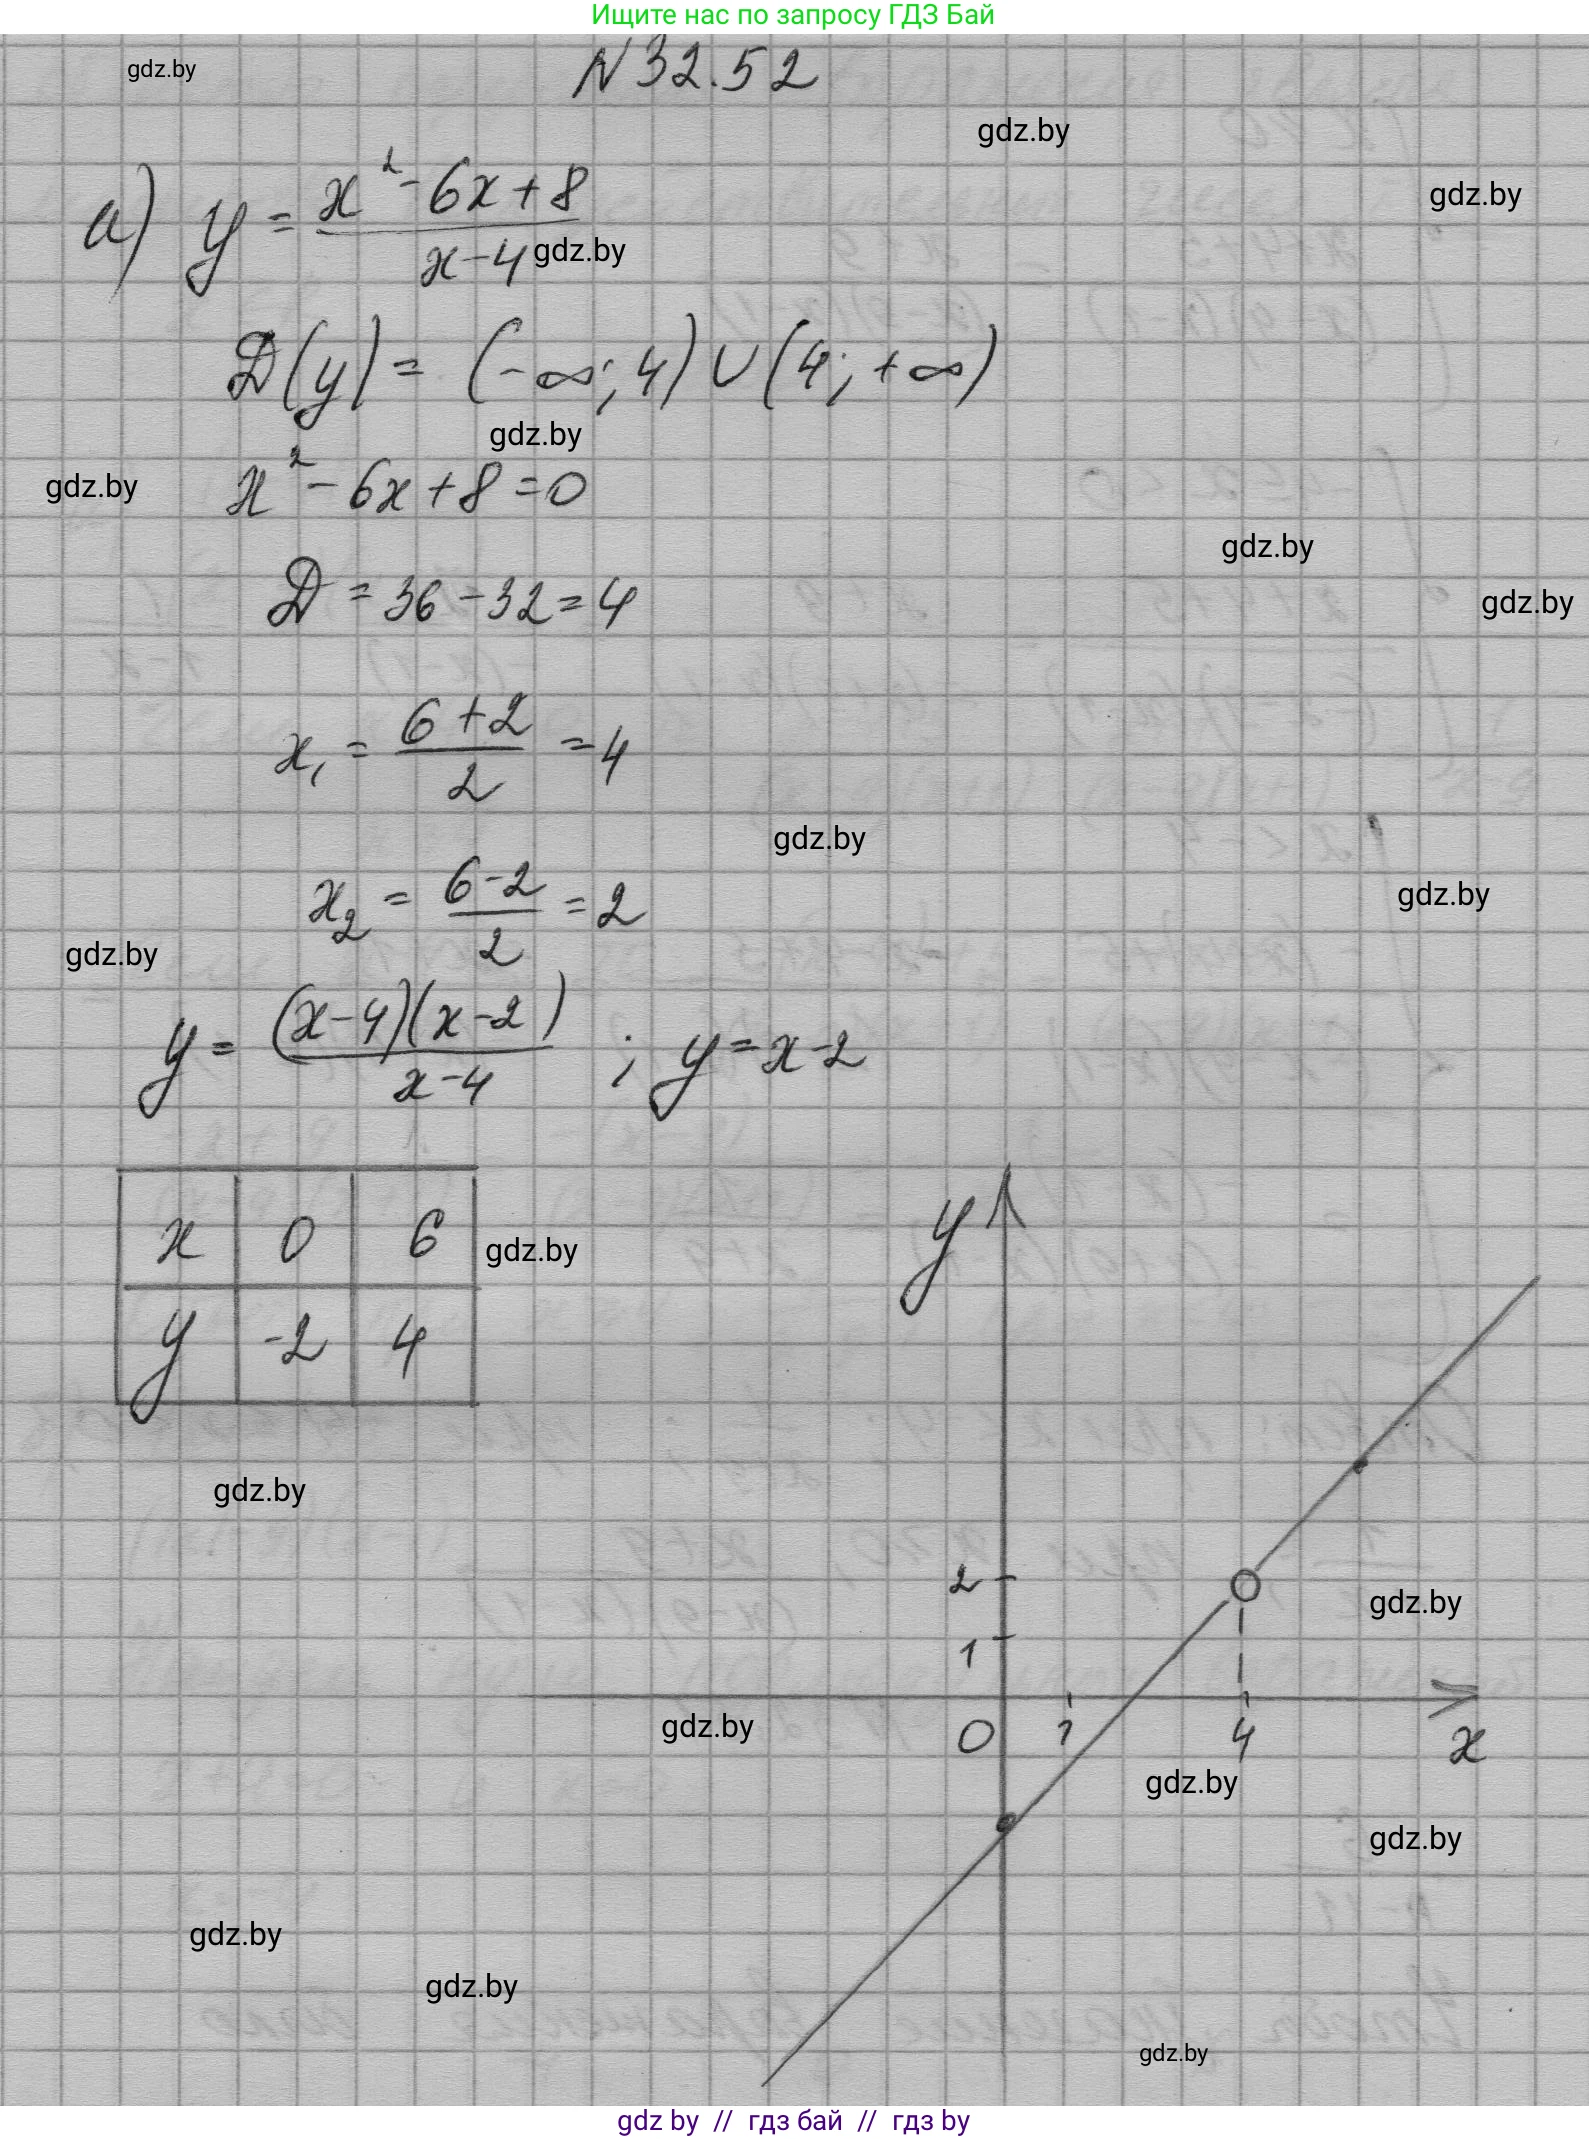 Ищите нас по запросу ГДЗ Бай
N 32.52
gdz.by
gdz.by
gdz.by
а) y = (x² - 6x + 8) / (x - 4)
gdz.by
D(y) = (-∞; 4) ∪ (4; +∞)
gdz.by
gdz.by
x² - 6x + 8 = 0
gdz.by
D = 36 - 32 = 4
gdz.by
x₁ = (6 + 2) / 2 = 4
gdz.by
x₂ = (6 - 2) / 2 = 2
gdz.by
gdz.by
y = (x - 4)(x - 2) / (x - 4) ; y = x - 2
x 0 6
gdz.by
y -2 4
y
gdz.by
2
gdz.by
1
gdz.by
0 1 4 x
gdz.by
gdz.by
gdz.by
gdz.by
gdz.by
gdz by // гдз бай // гдз by